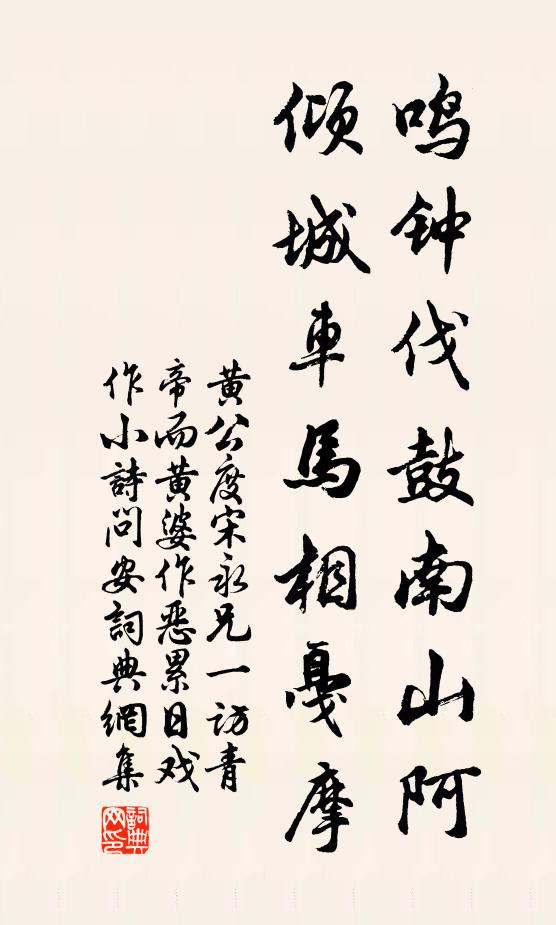 鸣钟伐鼓南山阿
倾城車馬相戛摩
黄公度宋永兄一访青
帝而黄婆作恶累日戏
作小詩问安詞典網集
詞典网印